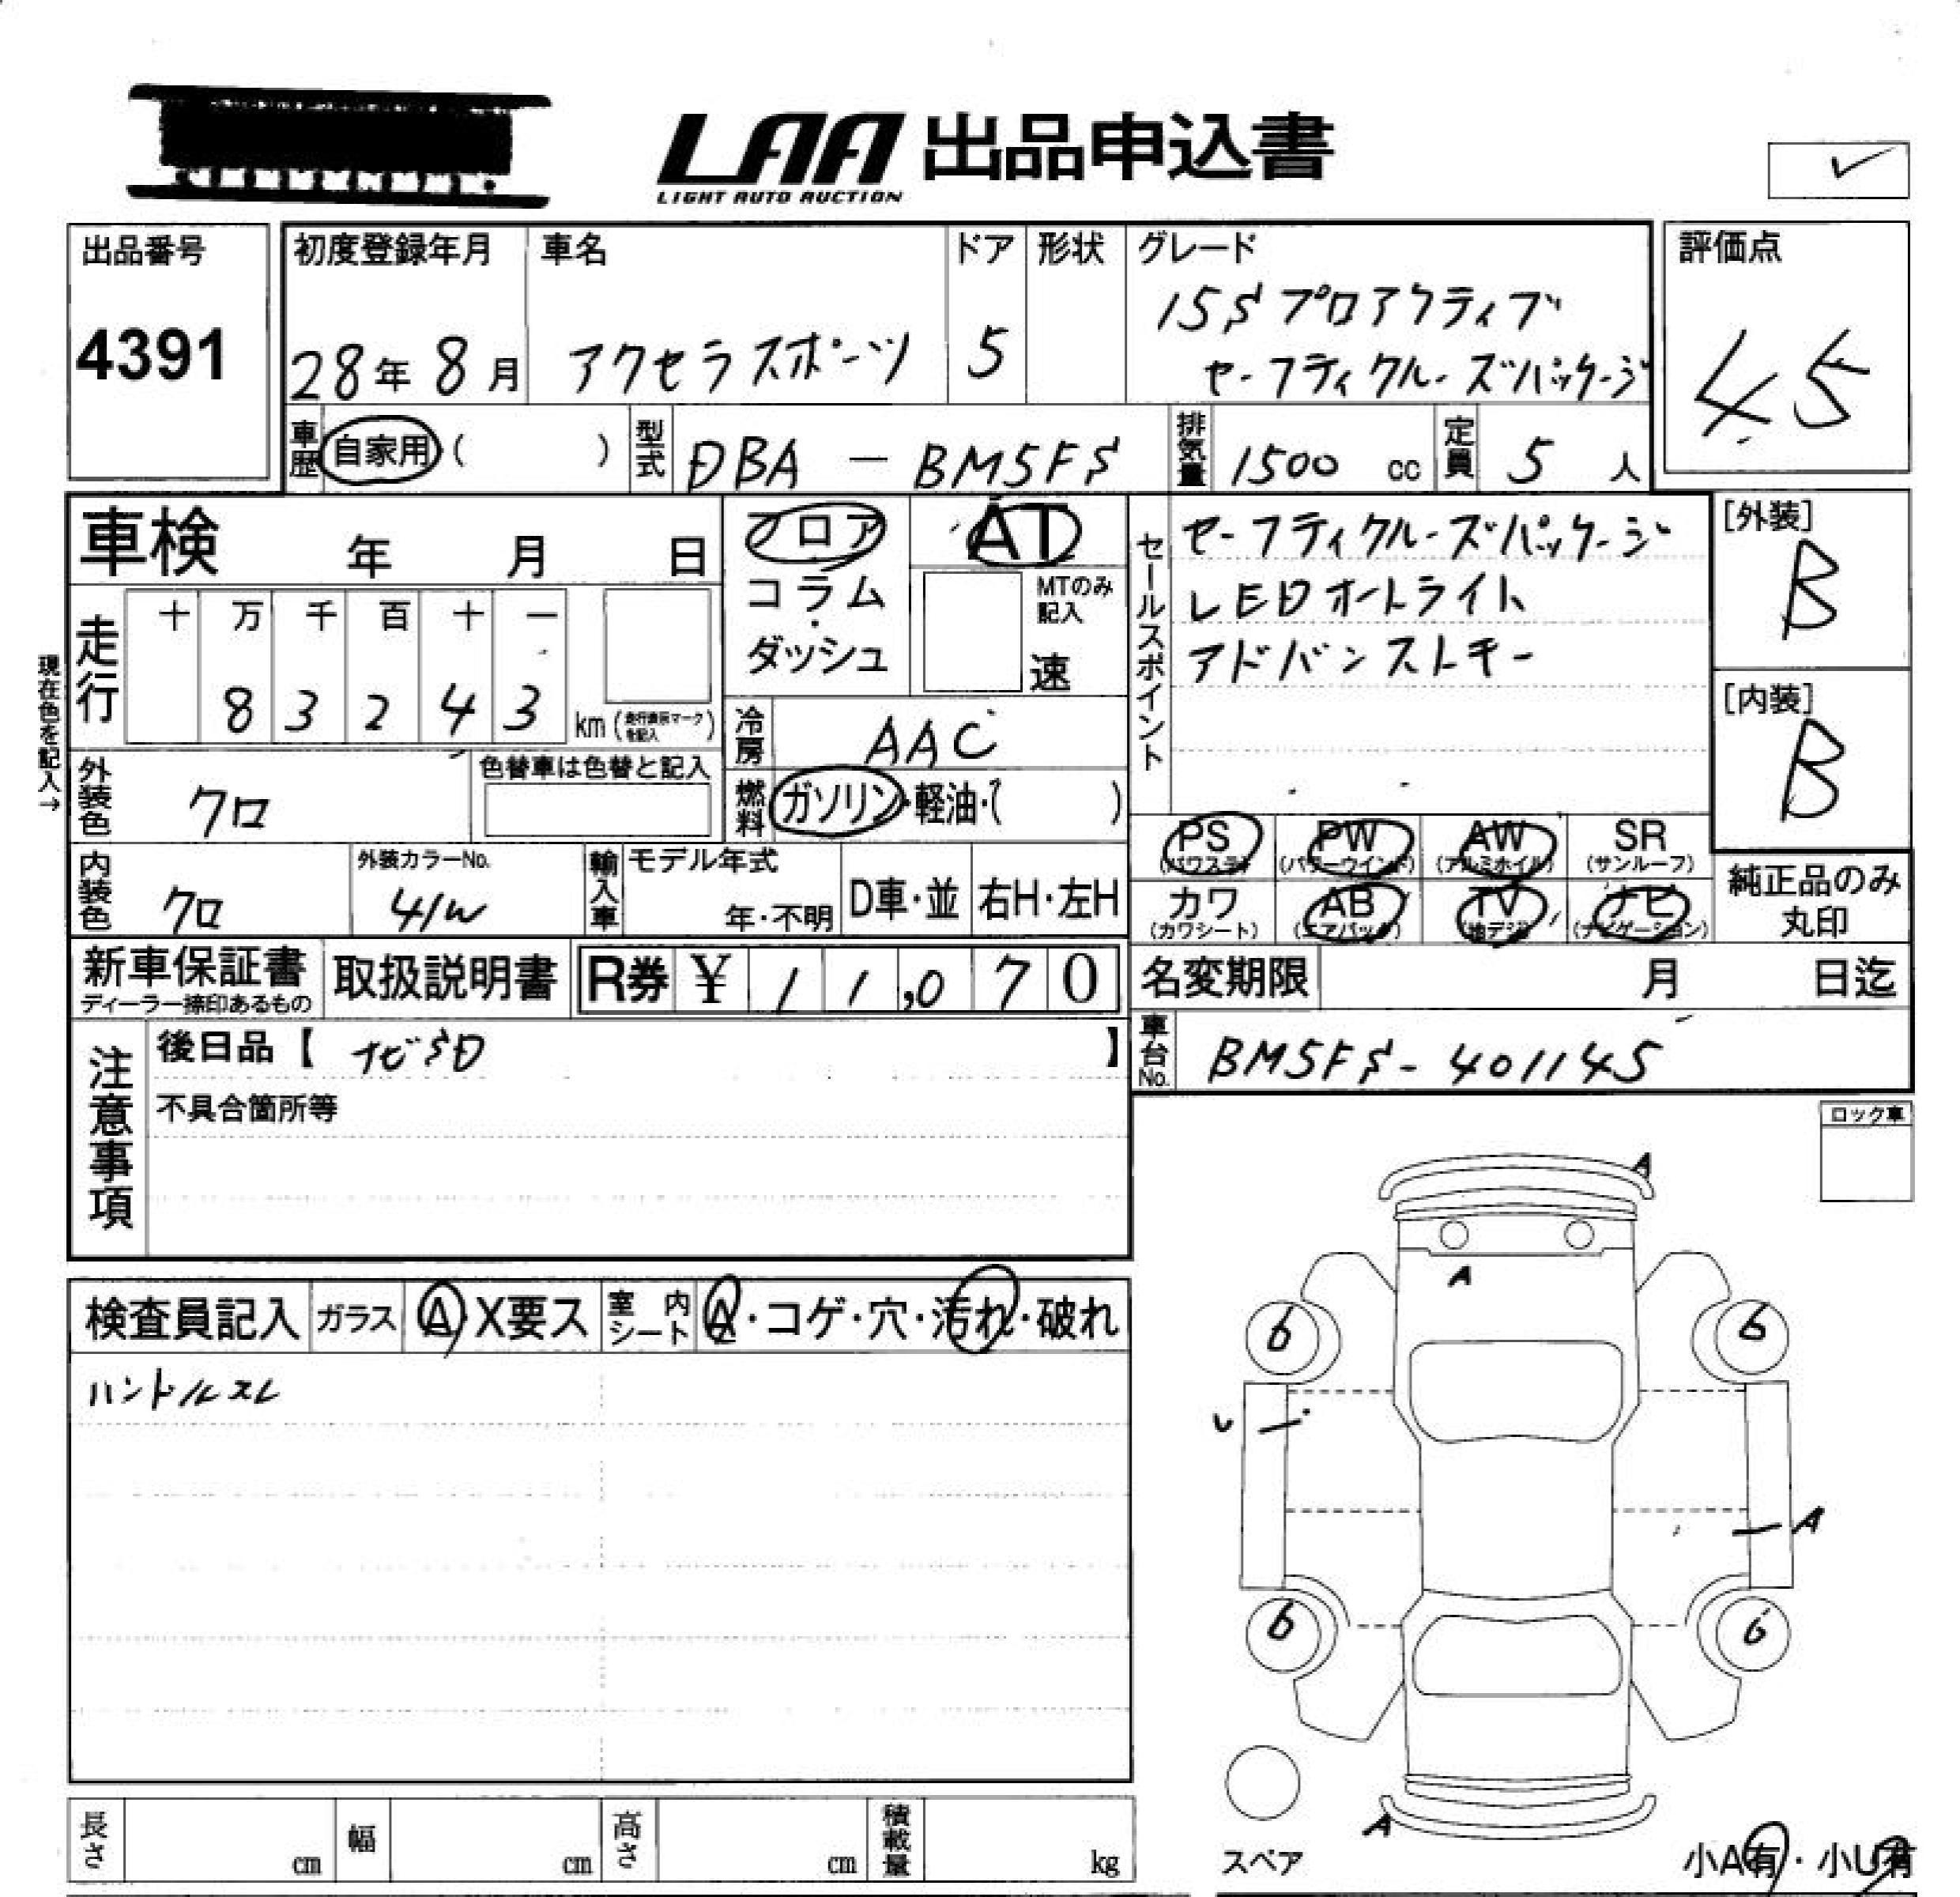 LAA 出品申込書
LIGHT AUTO AUCTION
出品番号 4391
初度登録年月 28年 8月
車名 アクセラスポーツ
ドア 5
形状
グレード 15S プロアクティブ
セーフティクルーズパッケージ
評価点 4.5
車歴 自家用 ( )
型式 DBA - BM5FS
排気量 1500 cc
定員 5 人
車検 年 月 日
フロア
コラム・
ダッシュ
AT
MTのみ記入
速
セールスポイント
セーフティクルーズパッケージ
LEDオートライト
アドバンストキー
[外装] B
[内装] B
現在色を記入→
走行 十 万 千 百 十 一
8 3 2 4 3 km (走行表示マークを記入)
冷房 AAC
外装色 クロ
色替車は色替と記入
燃料 ガソリン・軽油・( )
PS (パワステ) PW (パワーウインド) AW (アルミホイル) SR (サンルーフ)
カワ (カワシート) AB (エアバック) TV (地デジ) ナビ (ナビゲーション)
純正品のみ丸印
内装色 クロ
外装カラーNo. 41W
輸入車 モデル年式 年・不明 D車・並 右H・左H
新車保証書 ディーラー捺印あるもの
取扱説明書
R券 ¥ 11,070
名変期限 月 日迄
車台No. BM5FS-401145
注意事項
後日品【 ナビSD 】
不具合箇所等
ロック車
検査員記入 ガラス A・X要ス 室内シート A・コゲ・穴・汚れ・破れ
ハンドルスレ
A
A
6 6
U
A
6 6
A
スペア
小A有・小U有
長さ cm 幅 cm 高さ cm 積載量 kg